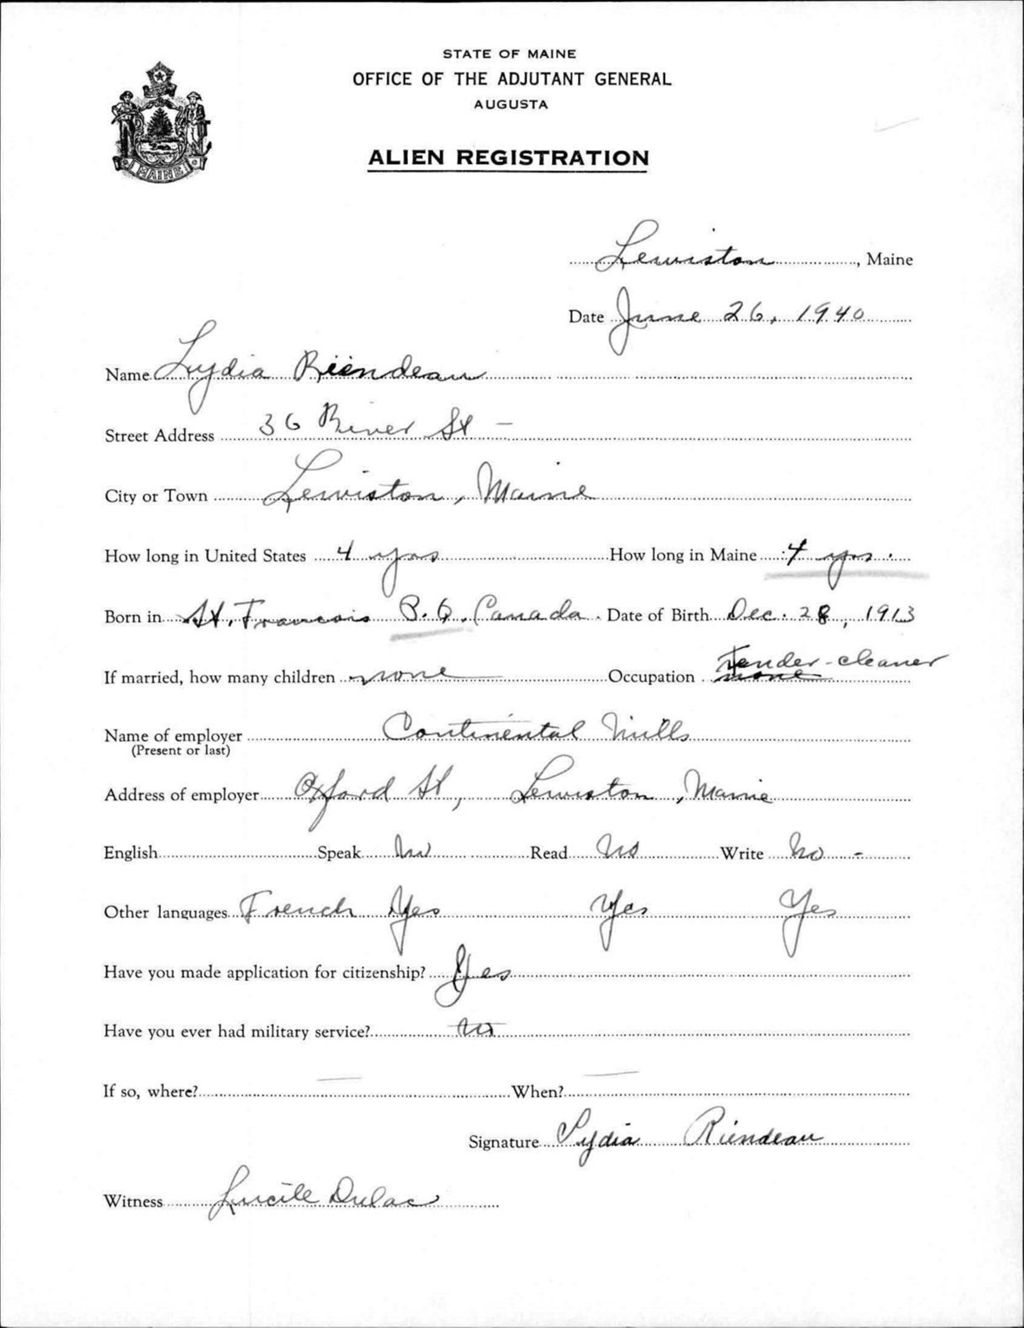 STATE OF MAINE
OFFICE OF THE ADJUTANT GENERAL
AUGUSTA
ALIEN REGISTRATION
MAINE
Lewiston, Maine
Date June 26, 1940
Name Lydia Riendeau
Street Address 36 River St -
City or Town Lewiston, Maine
How long in United States 4 yrs How long in Maine 4 yrs.
Born in St. Francois P.Q. Canada. Date of Birth Dec. 28, 1913
Tender-cleaner
If married, how many children none Occupation none
Name of employer Continental Mills
(Present or last)
Address of employer Oxford St, Lewiston, Maine
English Speak No Read No Write No -
Other languages French Yes Yes Yes
Have you made application for citizenship? Yes
Have you ever had military service? No
If so, where? — When? —
Signature Lydia Riendeau
Witness Lucile Dulac